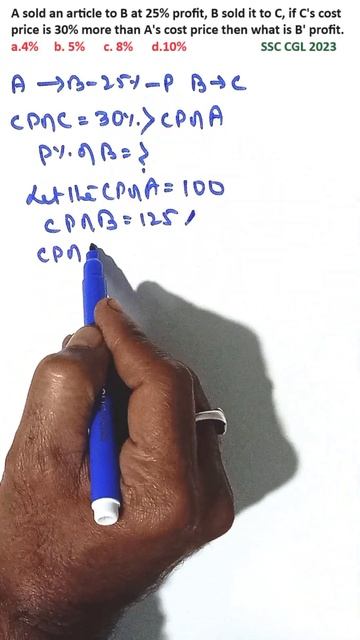 A sold an article to B at 25% profit, B sold it to C, if C's cost
price is 30% more than A's cost price then what is B' profit.
a.4% b. 5% c. 8% d.10% SSC CGL 2023
A → B - 25% - P B → C
CP of C = 30% > CP of A
P% of B = ?
Let the CP of A = 100
CP of B = 125
CP of